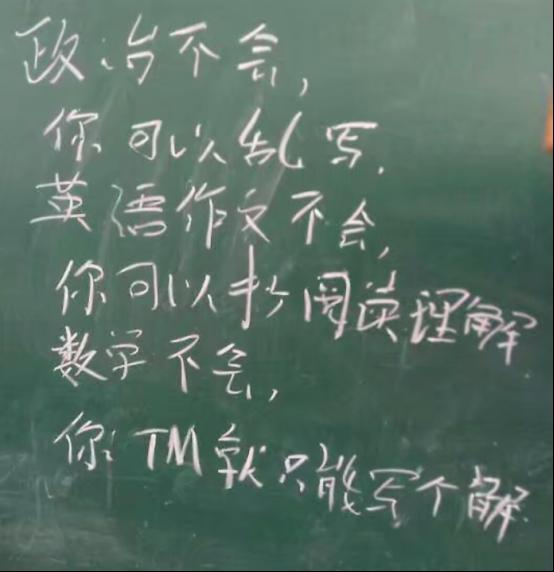 政治不会,
你可以乱写.
英语作文不会,
你可以抄阅读理解
数学不会,
你TM就只能写个解